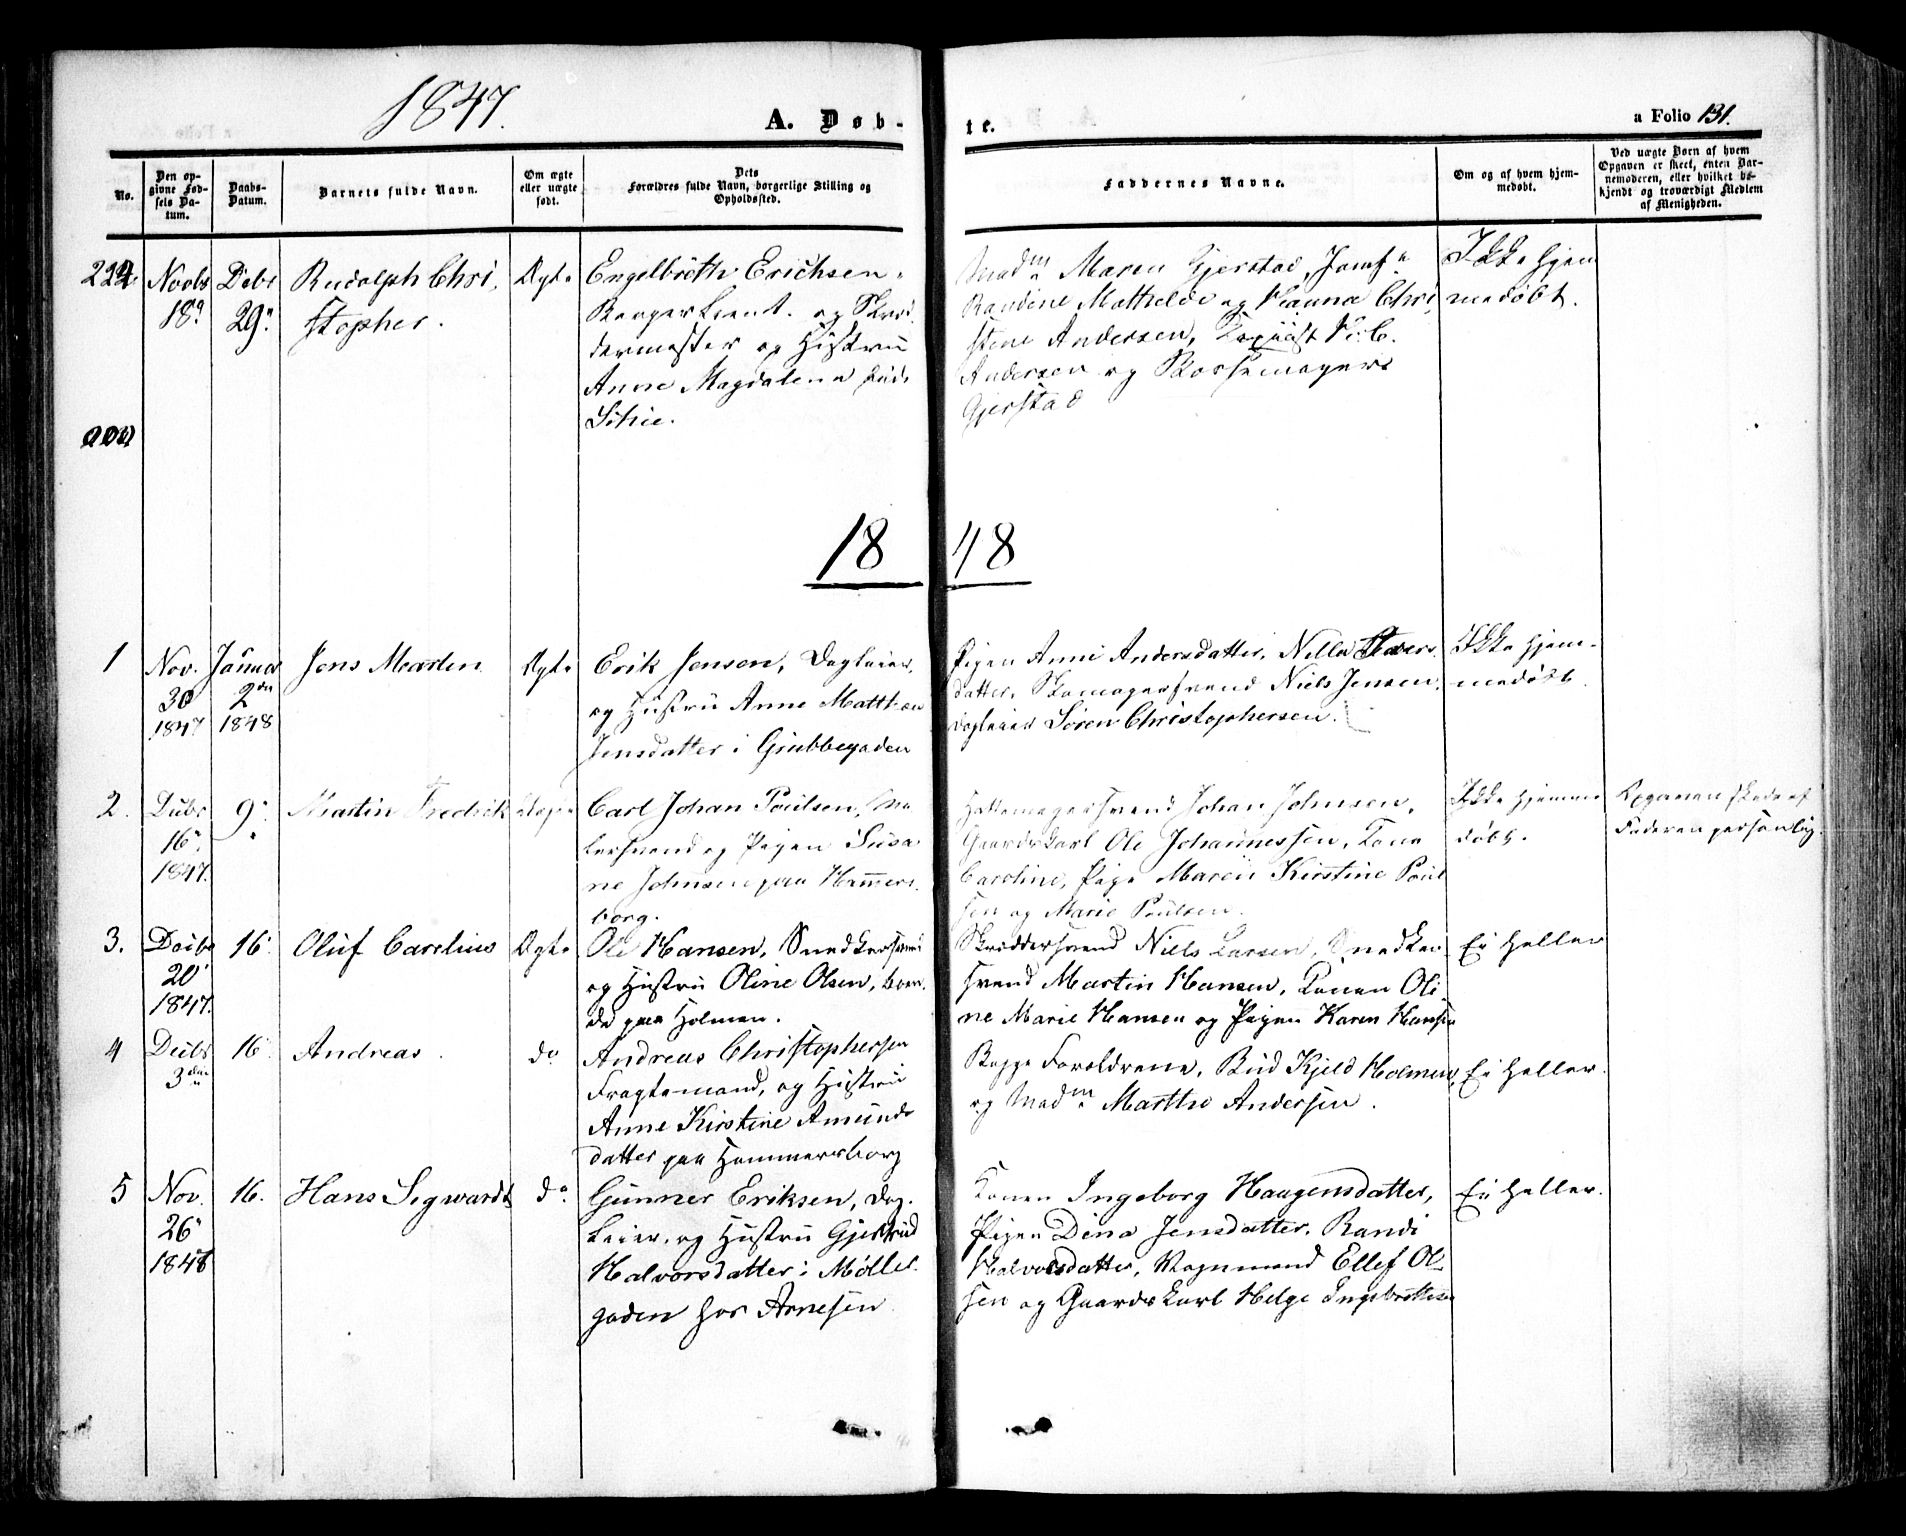 1847.
A. Døb-
te.
a Folio 131.
No.
Den op-
givne Fød-
sels Da-
tum.
Daabs-
Datum.
Barnets fulde Navn.
Om ægte
eller uægte
født.
Dets
Forældres fulde Navn, borgerlige Stilling og
Opholdssted.
Faddernes Navne.
Om og af hvem hjem-
medøbt.
Ved uægte Børn af hvem
Opgaven er skeet, enten Bar-
nemoderen, eller hvilket be-
kjendt og troværdigt Medlem
af Menigheden.
222 Novbr Debr Rudolph Chri- Ægte Engelbreth Erichsen,
18. 29. stopher.
Borgerlieut. og Skræd-
dermester og Hustru
Anne Magdalena
Madm Maren Gjerstad, Jomf
Randine Mathilde og Hanna Chri-
stine Andersen,
Andersen og Possemager
Gjerstad
Ikke hjem
medøbt.
18 48
1 Nov. Januar Jens Marten Ægte Erik Jensen, Dagleier,
30 2den
1847 1848
og Hustru Anne Matthea
Jensdatter i Grubbegaden
Pigen Anne Andersdatter, Nella
datter, Skomagersvend Niels Jensen,
Dagleier Søren Christophersen.
Ikke hjem-
medøbt.
2. Decbr 9. Martin Fredrik Uægte Carl Johan Poulsen, Ma-
16.
1847.
lersvend og Pigen Susa
ne Johnsen paa Hammers-
borg.
Hattemagersvend Johan Johnsen,
Gaardskarl Ole Johannessen, Kone
Caroline, Pige Maren Kirstine Poul
sen og Marie Poulsen.
Ikke hjemme
døbt.
Opgaven skede af
Faderen personlig.
3. Decbr 16. Oluf Carelius Ægte Ole Hansen, Snedkersvend
20
1847.
og Hustru Oline Olsen, boen-
de paa Holmen.
Skræddersvend Niels Larsen, Snedker
svend Martin Hansen, Konen Oli
ne Marie Hansen og Pigen Karen Hansen
Ei heller
4 Decbr 16 Andreas. do Andreas Christophersen
3die
Fragtemand, og Hustru
Anne Kirstine Amunds
datter paa Hammersborg
Begge Forældrene, Bud Kjeld Holmen,
og Madm Marthe Andersen.
Ei heller.
5 Nov. 16. Hans Segwardt do Gunner Eriksen, Dag-
26
1848
leier, og Hustru Gjertrud
Halvorsdatter i Møller-
gaden hos Arnesen
Konen Ingeborg Haagensdatter,
Pigen Dina Jensdatter, Randi
Halvorsdatter, Vognmand Ellef Ol-
sen og Gaardskarl Helge Ingebrethsen
Ei heller.